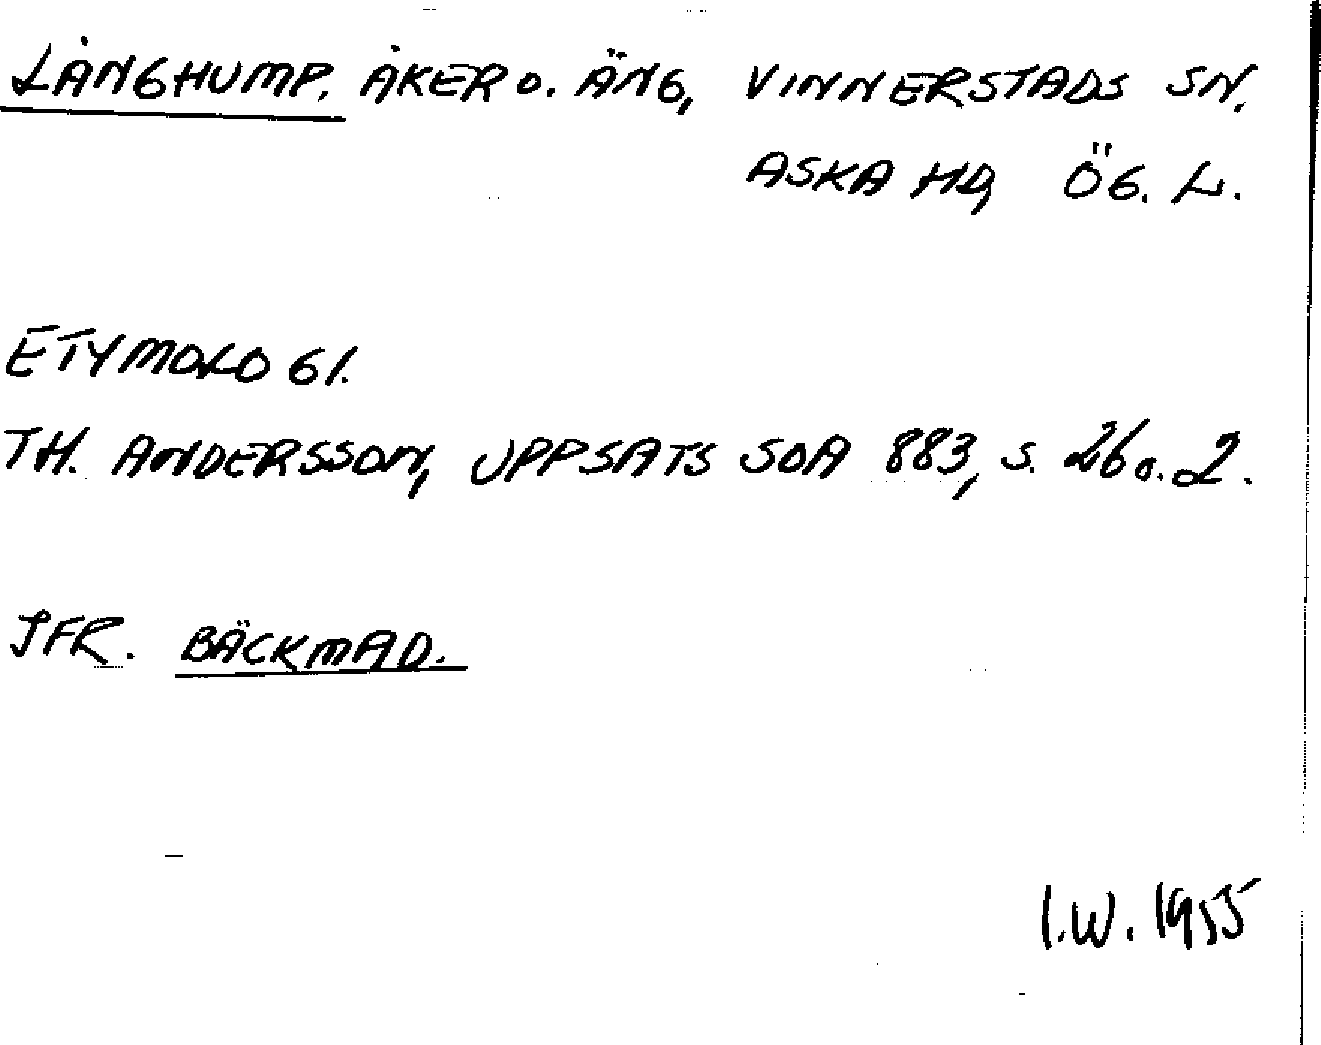 LÅNGHUMP. ÅKER O. ÄNG, VINNERSTADS SN.
ASKA HD, ÖG. L.
ETYMOLOGI.
TH. ANDERSSON, UPPSATS SOA 883, S. 26 o. 2.
JFR. BÄCKMAD.
I.W. 1955